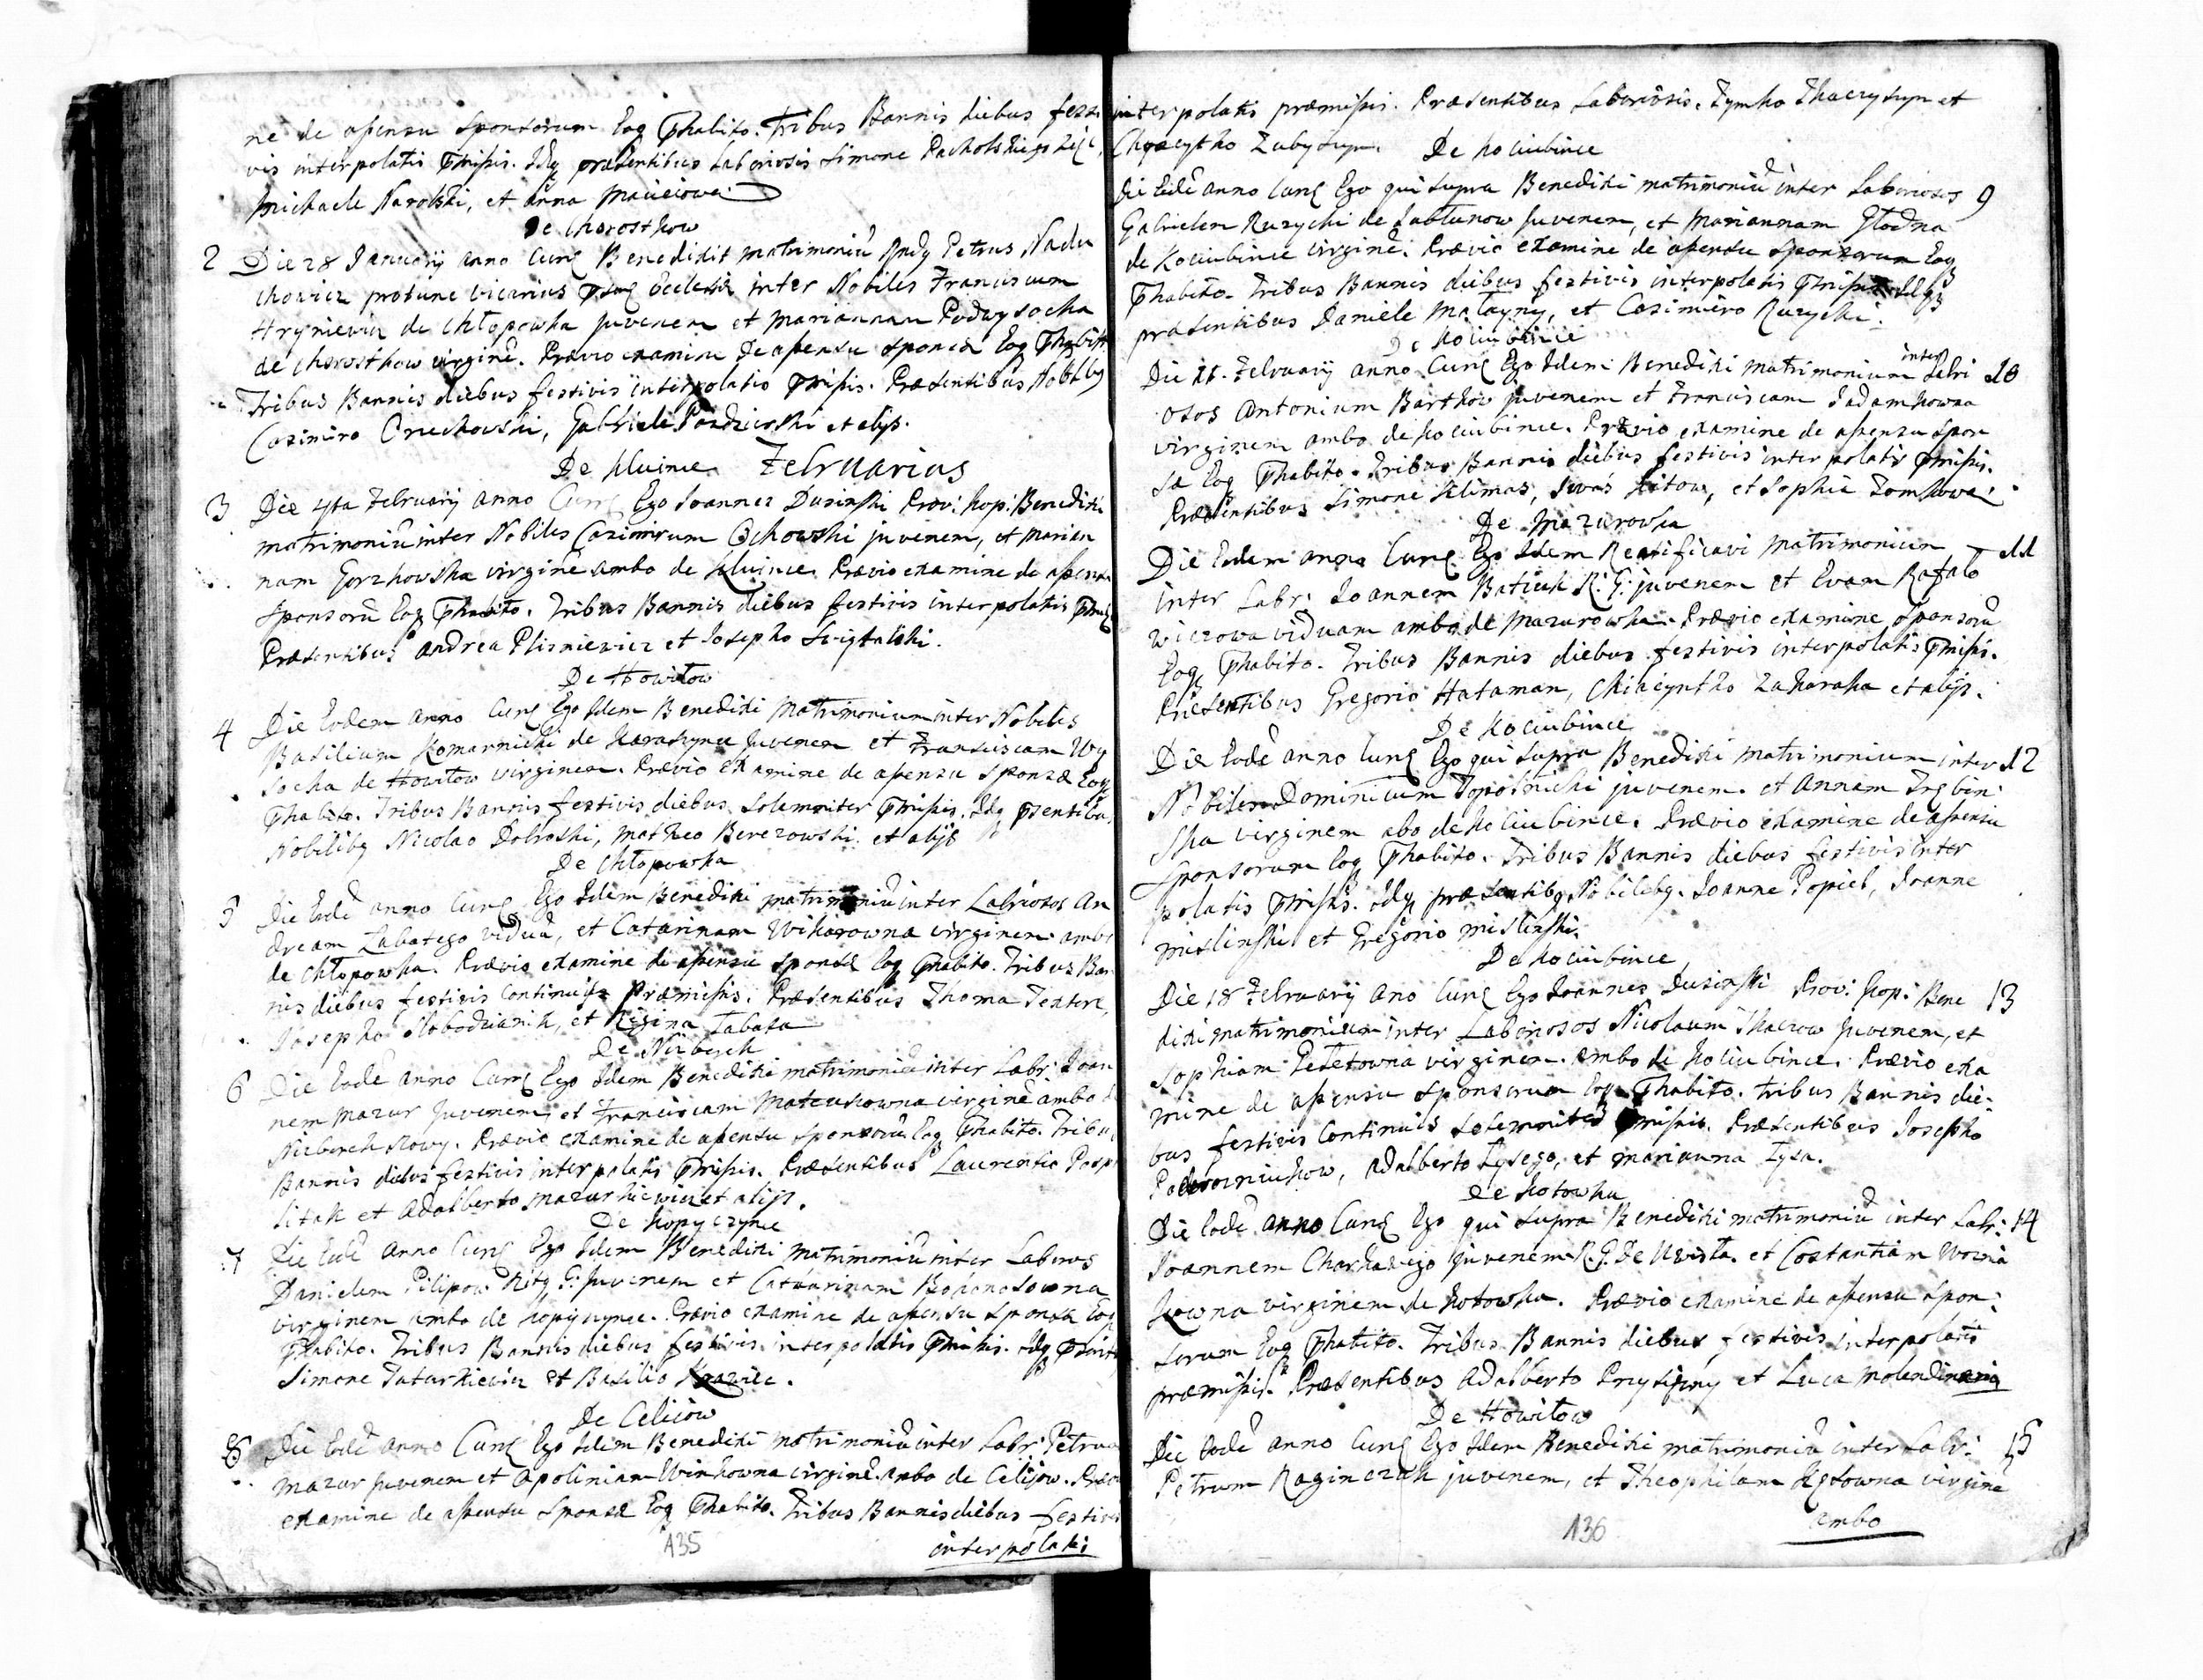 ne de assensu sponsorum Eoq Phabito. Tribus Bannis diebus festi
vis interpolatis Pmissis. Idq præsentibus Laboriosis Simone Pacholskiego
Michaele Narolski, et Anna Maciiowa
De Chorostkow
2 Die 28 Januarij Anno Curr Benedixit matrimoniū Rndq Petrus Nadu
chowicz protunc vicarius Ecclesiæ inter Nobiles Franciscum
Hryniewicz de Chłopowka juvenem et Mariannam Podwysocka
de Chorostkow virginē. Prævio examine de assensu sponsæ Eoq Phabito
Tribus Bannis diebus festivis interpolatis Pmissis. Præsentibus Nobilibq
Casimiro Oruchowski, Gabriele et alijs.
De Kluince Februarius
3 Die 4ta February Anno Curr Ego Joannes Dusinski Prov: Kop: Benedixi
matrimoniū inter Nobiles Casimirum Ochowski juvenem, et Marian
nam Gorzkowska virginē ambo de Kluince. Prævio examine de assensu
sponsorū Eoq Phabito. Tribus Bannis diebus festivis interpolatis
Præsentibus Andrea Plisniewicz et Josepho Swigtalski.
De Howiłow
4 Die Eodem Anno Curr Ego Idem Benedixi Matrimonium inter Nobiles
Basilium Komarnicki de Karaszynce Juvenem et Franciscam Wy
socka de Howiłow virginem. Prævio examine de assensu sponsæ Eoq
Phabito. Tribus Bannis festivis diebus solemniter Pmissis. Idq Psentibus
Nobilibq Nicolao Dobroski, Matheo Berezowski et alijs
De Chłopowka
5 Die Eodē anno Curr Ego Idem Benedixi matrimoniū inter Labriosos An
dream Labatego viduū, et Catarinam Wikarowna virginem ambo
de Chłopowka. Prævio examine de assensu sponsæ Eoq Phabito. Tribus Ban
nis diebus festivis Continuis Præmissis. Præsentibus Thoma Textore,
Josepho Słobodzianik, et Regina Labata
De Nizborek
6 Die Eodē Anno Curr Ego Idem Benedixi matrimoniū inter Labr: Joan
nem Mazur Juvenem, et Franciscam Mateuszowna virginē ambo
Nizborek Nowy. Prævio examine de assensu sponsorū Eoq Phabito. Tribus
Bannis diebus festivis interpolatis Pmissis. Præsentibus Laurentio Posp
litak et Adalberto Mazurkiewicz et alijs.
De Kopyczynce
7 Die Eodē Anno Curr Ego Idem Benedixi Matrimoniū inter Laboros
Danielem Pilipow Ritq G: Juvenem et Catharinam Bohonosowna
virginem ambo de Kopyczynce. Prævio examine de assensu sponsæ Eoq
Phabito. Tribus Bannis diebus festivis interpolatis Pmissis. Idq Psentib
Simone Tatarkiewicz et Basilio Krawiec.
De Celiiow
8 Die Eodē anno Curr Ego Idem Benedixi matrimoniū inter Labr: Petrum
Mazur Juvenem et Apoliniam Winkowna virginē ambo de Celijow. Præv
examine de assensu sponsæ Eoq Phabito. Tribus Bannis diebus festivis
135 interpolatis
interpolatis præmissis. Præsentibus Laboriosis. Tymko Tkaczyszyn et
Chyacyntho Zubyszyn. De Kociubince
Die Eodē anno Curr Ego qui supra Benedixi matrimoniū inter Laboriosos 9
Gabrielem Ruzycki de Jabłunow Juvenem, et Mariannam Głodna
de Kociubince virginē. Prævio examine de assensu sponsorum Eoq
Phabito. Tribus Bannis diebus festivis interpolatis Pmissis Idq
præsentibus Daniele Małayny, et Casimiro Ruzycki.
De Kociubince
Die 11. February anno Curr Ego Idem Benedixi matrimonium inter Labri 10
osos Antonium Bartkow juvenem et Franciscam Jadamkowna
virginem ambo de Kociubince. Prævio examine de assensu spon
sæ Eoq Phabito. Tribus Bannis diebus festivis interpolatis Pmissis.
Præsentibus Simone Klimas, Iwas Kitow, et Sophia Tomkowa.
De Mazurowka
Die Eodem anno Curr Ego Idem Reatificavi matrimonium 11
inter Labr: Joannem Batiuk R: G: juvenem et Evam Rafało
wiczowa viduam ambo de Mazurowka. Prævio examine sponsorū
Eoq Phabito. Tribus Bannis diebus festivis interpolatis Pmissis.
Præsentibus Gregorio Hataman, Chiacyntho Zakaraka et alijs.
De Kociubince
Die Eodē anno Curr Ego qui supra Benedixi matrimonium inter 12
Nobiles Dominicum Topolnicki juvenem et Annam Trębin
ska virginem abo de Kociubince. Prævio examine de assensu
sponsorum Eoq Phabito. Tribus Bannis diebus festivis inter
polatis Pmissis. Idq præsentibq Nobilibq. Joanne Popiel, Joanne
Mislinski et Gregorio Mislinski.
De Kociubince
Die 18 February Ano Curr Ego Joannes Dusinski Prov: Kop: Bene 13
dixi matrimonium inter Laboriosos Nicolaum Tkaczow Juvenem, et
Sophiam Petetowna virginem ambo de Kociubince. Prævio exa
mine de assensu sponsorum Eoq Phabito. Tribus Bannis die:
bus festivis Continuis solemniter Pmissis. Præsentibus Josepho
Adalberto Łysego, et Marianna Łysa.
De Kotowka
Die Eodē anno Curr Ego qui supra Benedixi matrimoniū inter Labr: 14
Joannem Charkawego Juvenem R. G. De Uwisła. et Costantiam Wozni
kowna virginem de Kotowka. Prævio examine de assensu spon:
sorum Eoq Phabito. Tribus Bannis diebus festivis interpolatis
præmissis. Præsentibus Adalberto et Luca Molendinario
De Howiłow
Die Eodē anno Curr Ego Idem Benedixi matrimoniū inter Labr: 15
Petrum Raginczuk juvenem, et Theophilam Kętowna virginē
136 ambo